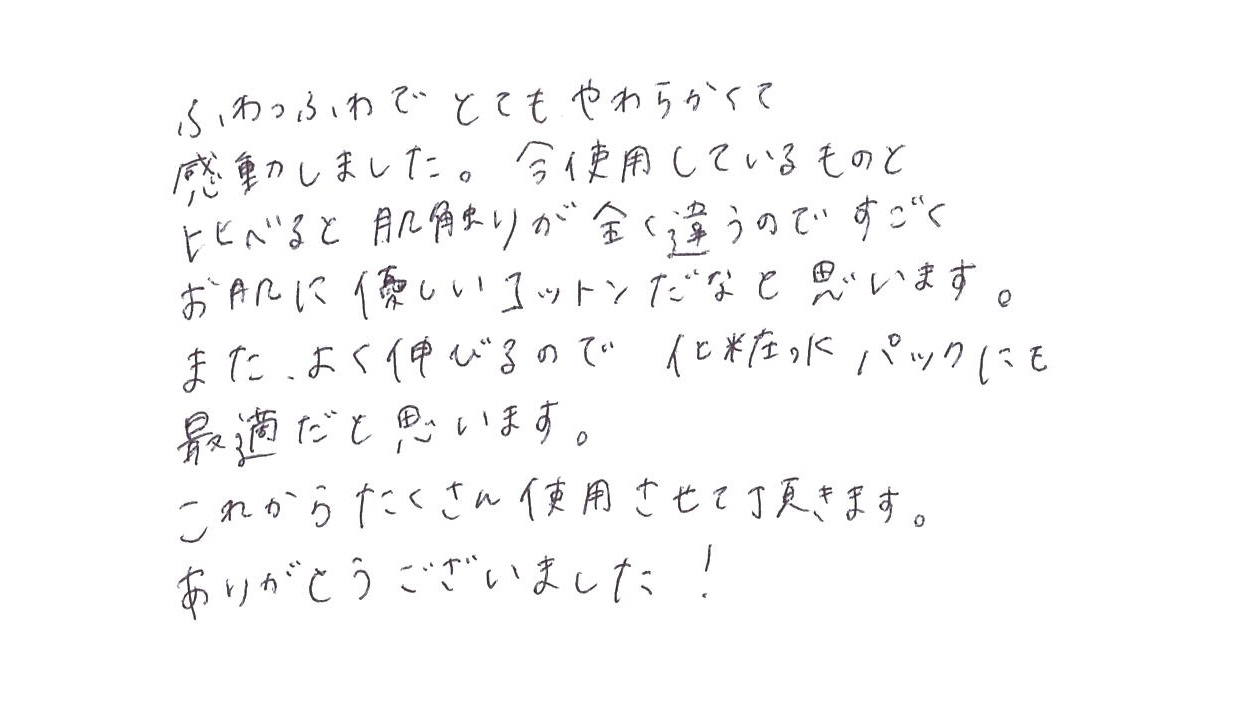 ふわっふわで とても やわらかくて
感動しました。 今使用しているものと
比べると 肌触りが 全く違うので すごく
お肌に 優しいコットンだなと 思います。
また、よく伸びるので 化粧水パックにも
最適だと思います。
これから たくさん使用させて頂きます。
ありがとうございました！